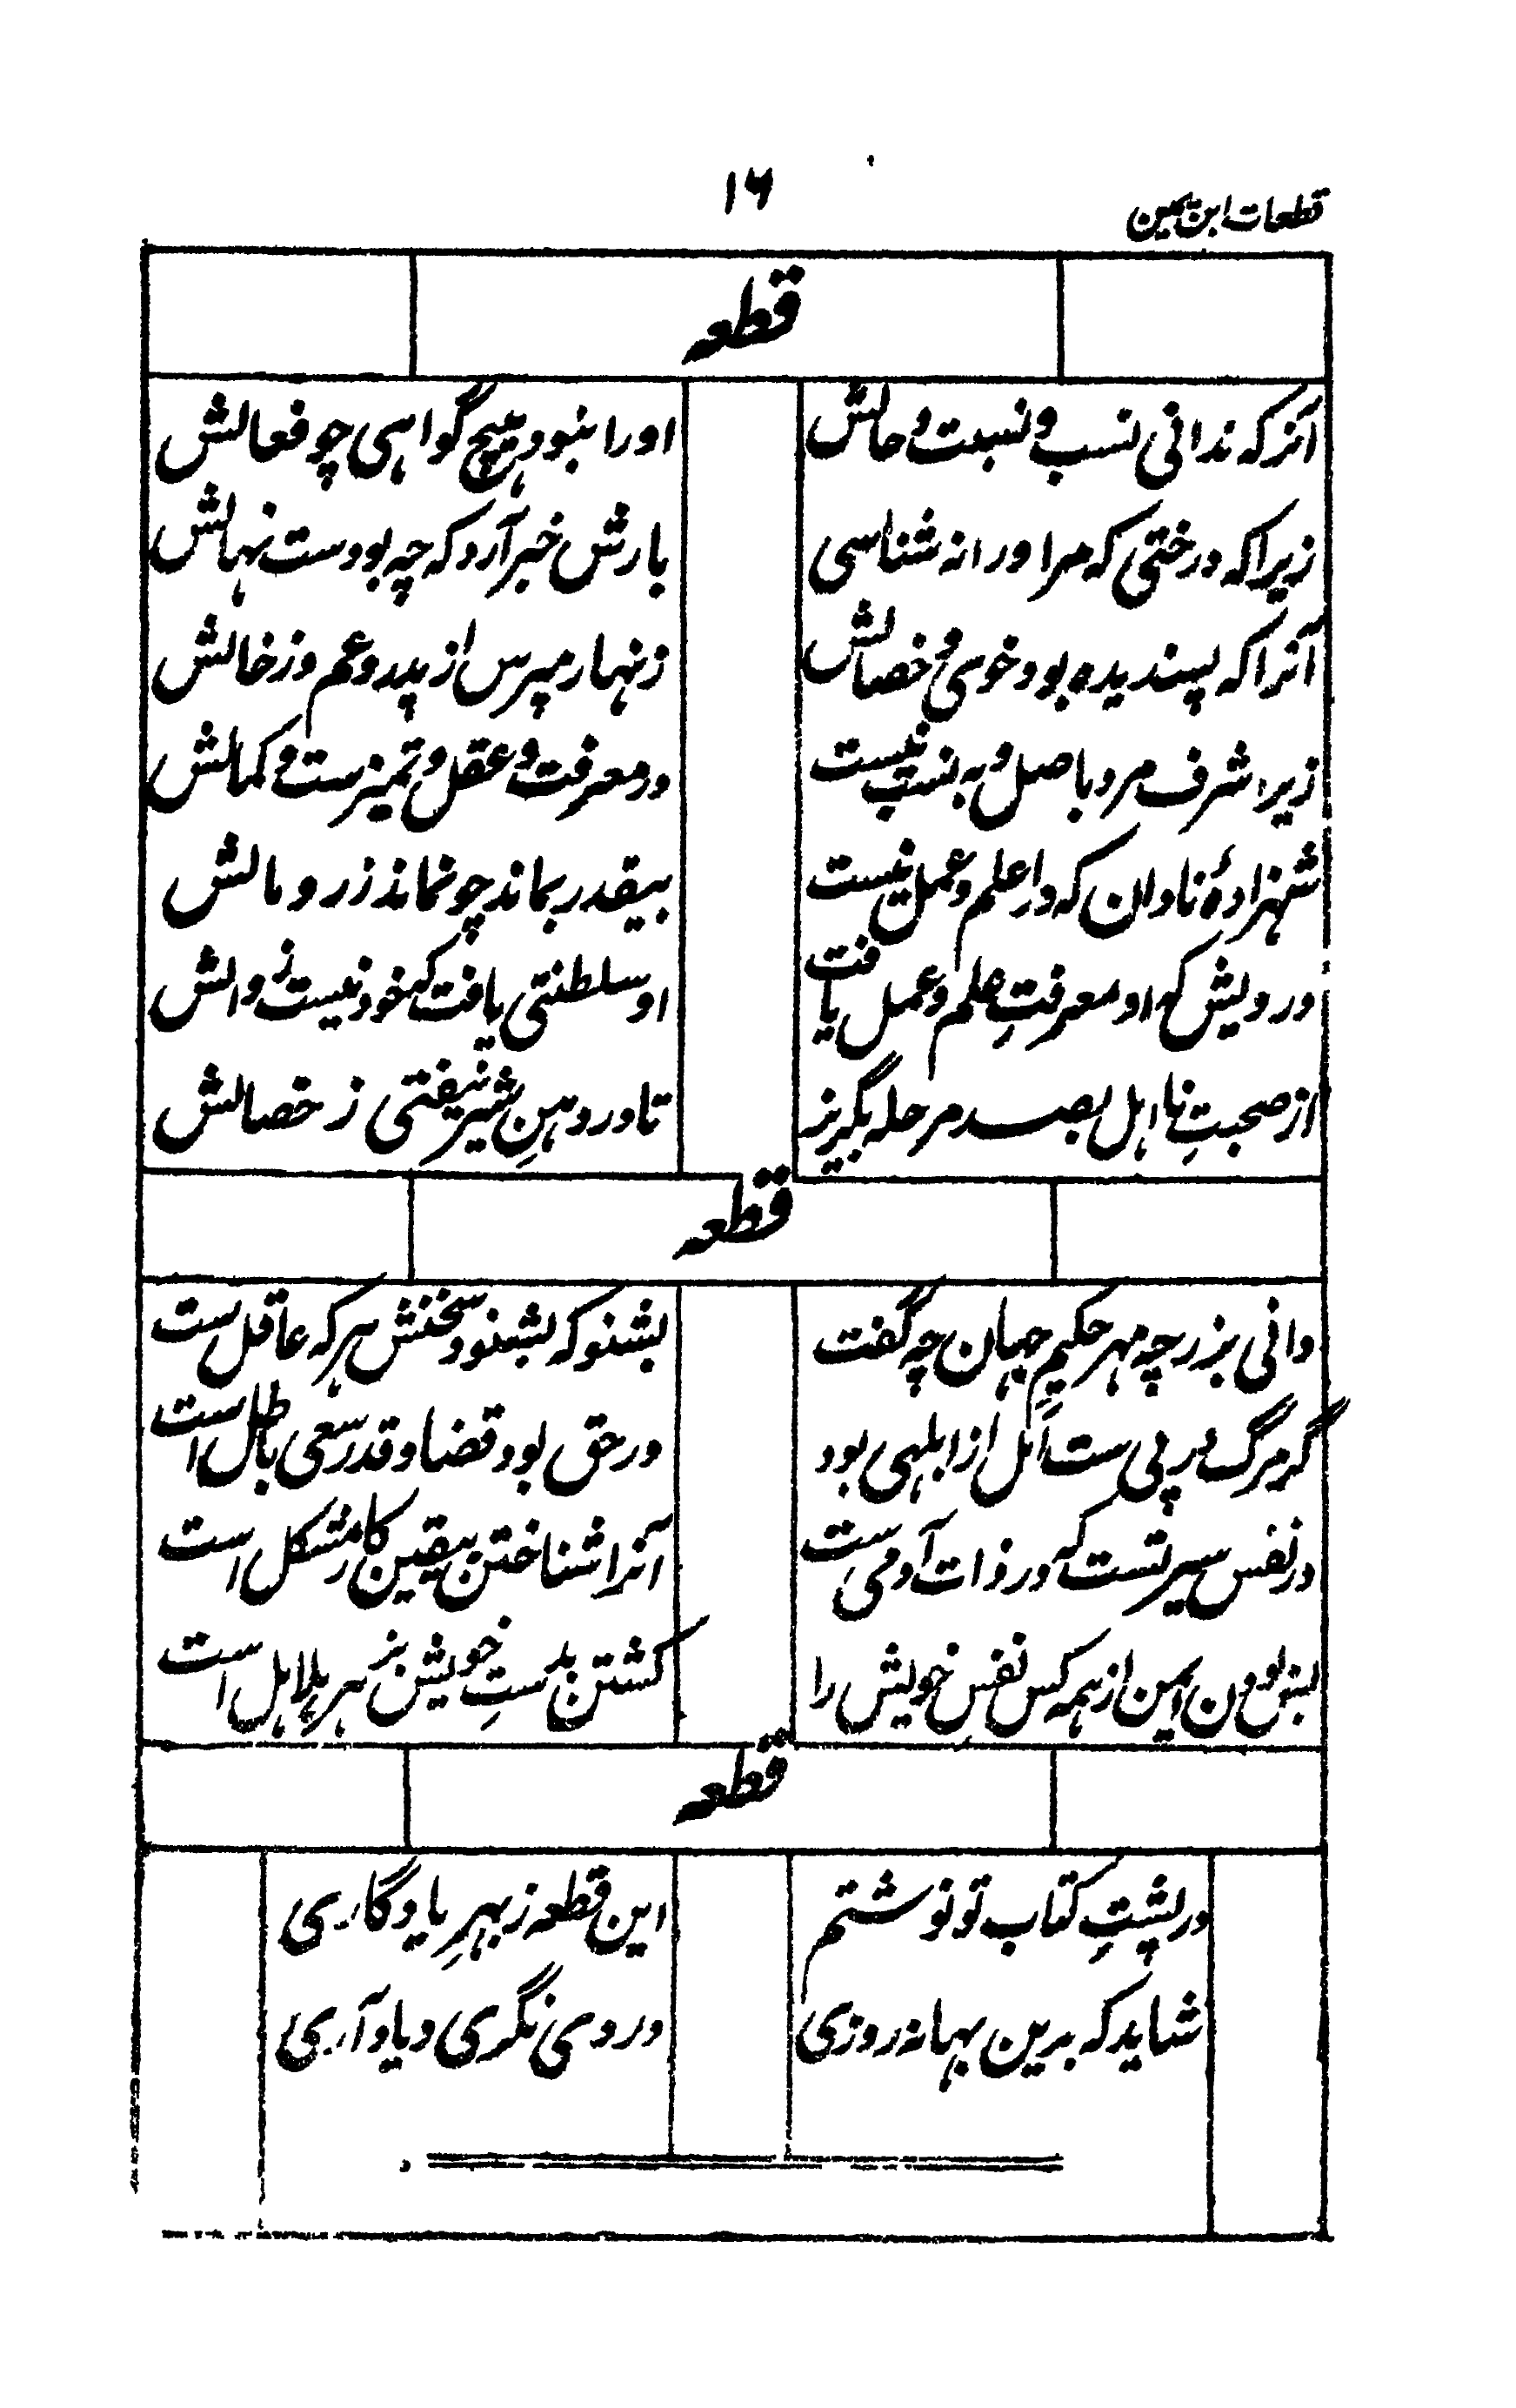 قطعات ابن یمین
۱۶
قطعه
آنرا که ندانی نسب و نسبت و حالش
اورا نبود هیچ گواهی چو فعالش
زیرا که درختی که مر اورا نه شناسی
بارش خبر آرد که چه بودست نهالش
آنرا که پسندیده بود خوی و خصالش
زنهار مپرس از پدر و عم و ز خالش
زیرا شرف مرد باصل و به نسب نیست
در معرفت و عقل و تمیزست و کمالش
شهزادهٔ نادان که درا علم و عمل نیست
بیقدر بماند چو نماند زر و مالش
درویش که او معرفتِ علم و عمل یافت
او سلطنتی یافت که خود نیست زوالش
از صحبتِ نا اهل بصد مرحله بگریز
تا در دهنِ شیر نیفتی ز خصالش
قطعه
دانی بزرچه مهر حکیمِ جهان چه گفت
بشنو که بشنود سخنش هر که عاقل ست
گر مرگ در پی ست اَمَل از ابلهی بود
ور حق بود قضا و قدر سعی باطل است
در نفس سیرتست که در ذات آدمی ست
آنرا شناختن بیقین کار مشکل است
ایمن از همه کس نفس خویش را
کشتن بدستِ خویش بز هر هلاهل است
قطعه
در پشتِ کتاب تو نوشتم
این قطعه ز بهرِ یادگاری
شاید که برین بهانه روزی
در وی نگری و یاد آری